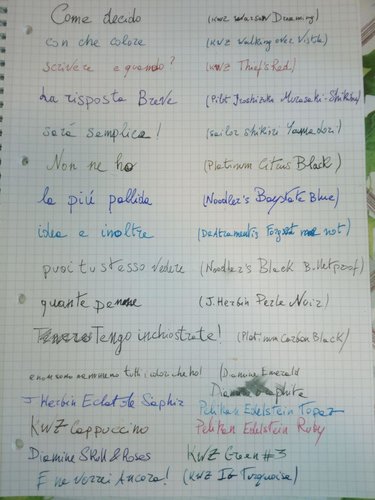 Come decido (KWZ Warsaw Dreaming)
con che colore (KWZ Walking over Vistula)
scrivere e quando? (KWZ Thief's Red)
La risposta Breve (Pilot Iroshizuku Murasaki-Shikibu)
sarà semplice! (Sailor Shikiori Yamadori)
Non ne ho (Platinum Citrus Black)
la più pallida (Noodler's Baystate Blue)
idea e inoltre (DeAtramentis Forget me not)
puoi tu stesso vedere (Noodler's Black B.Metproof)
quante penne (J. Herbin Perle Noir)
Tengo inchiostrate! (Platinum Carbon Black)
e non sono nemmeno tutti i colori che ho! (Diamine Emerald
J Herbin Eclat de Saphir Diamine Graphite
Pelikan Edelstein Topaz
KWZ Cappuccino Pelikan Edelstein Ruby
Diamine Skull & Roses KWZ Green #3
E ne vorrei Ancora! (KWZ IG Turquoise)